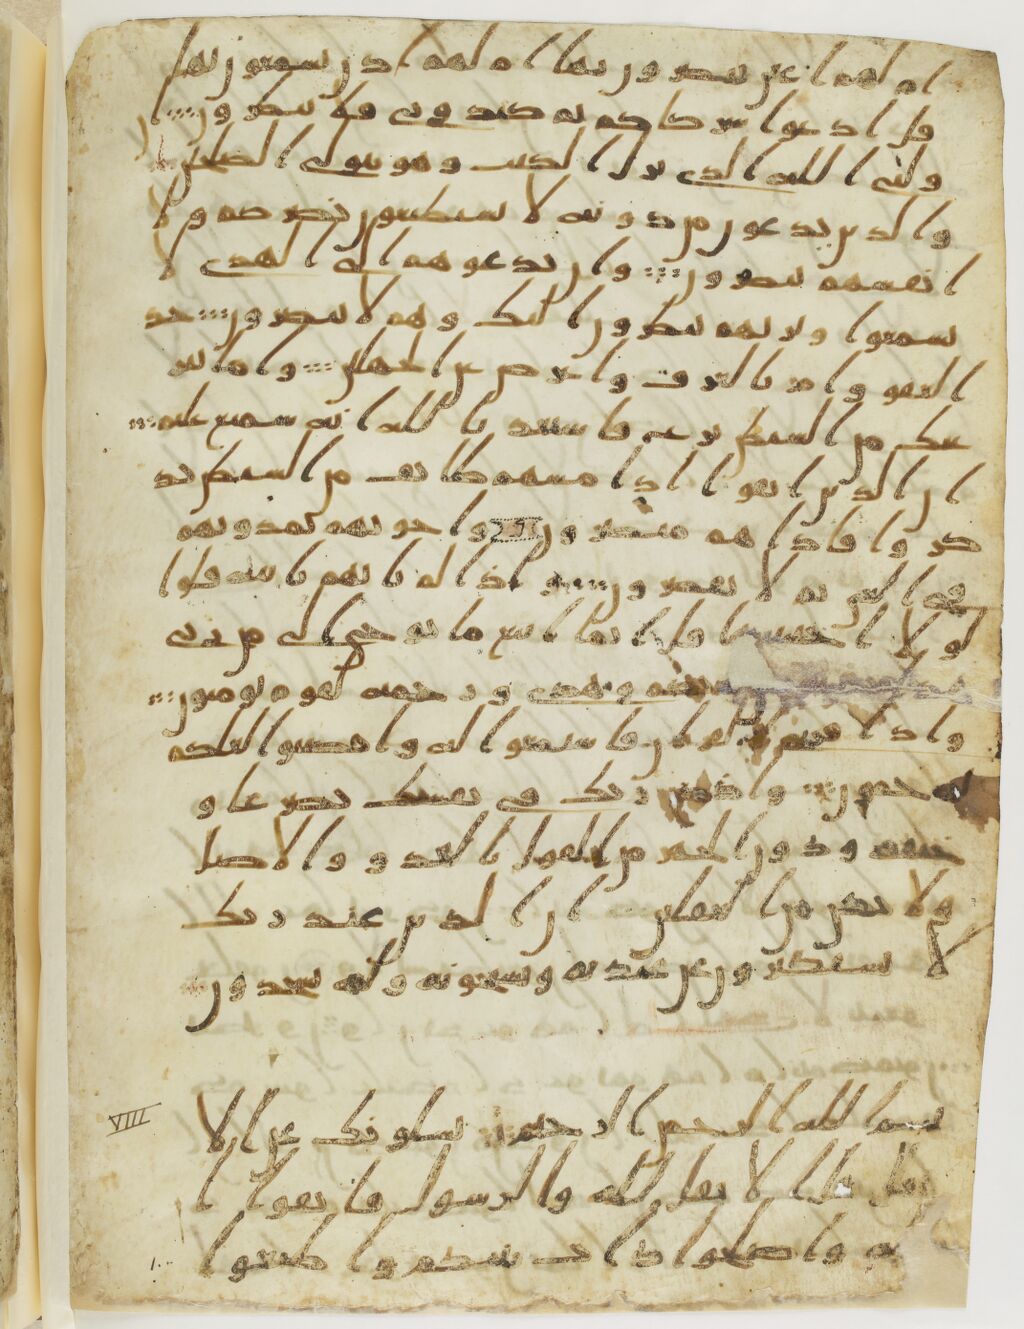 ام لهم اعين يبصرون بها ام لهم اذن يسمعون بها
قل ادعوا شركاكم ثم كيدوني فلا تنظرون ا
ولي الله الذي نزل الكتب وهو يتولى الصلحين
والذين تدعون من دونه لا يستطيعون نصركم ولا
انفسهم ينصرون وان تدعوهم الى الهدى لا
يسمعوا وتريهم ينظرون اليك وهم لا يبصرون خذ
العفو وامر بالعرف واعرض عن الجهلين واما ينز
غنك من الشيطن نزغ فاستعذ بالله انه سميع عليم
ان الذين اتقوا اذا مسهم طيف من الشيطن تذ
كروا فاذا هم مبصرون واخونهم يمدونهم
في الغي ثم لا يقصرون واذا لم تاتهم بايه قلوا
لولا اجتبيتها قل انما اتبع ما يوحى الي من ربي
وهدى ورحمه لقوم يومنون
واذا قرى القران فاستمعوا له وانصتوا لعلكم
ترحمون واذكر ربك في نفسك تضرعا و
خيفه ودون الجهر من القول بالغدو والاصل
ولا تكن من الغفلين ان الذين عند ربك
لا يستكبرون عن عبدته ويسبحونه وله يسجدون
بسم الله الرحمن الرحيم يسلونك عن الا
VIII
نفل قل الانفل لله والرسول فاتقوا ا
لله واصلحوا ذات بينكم واطيعوا
1...